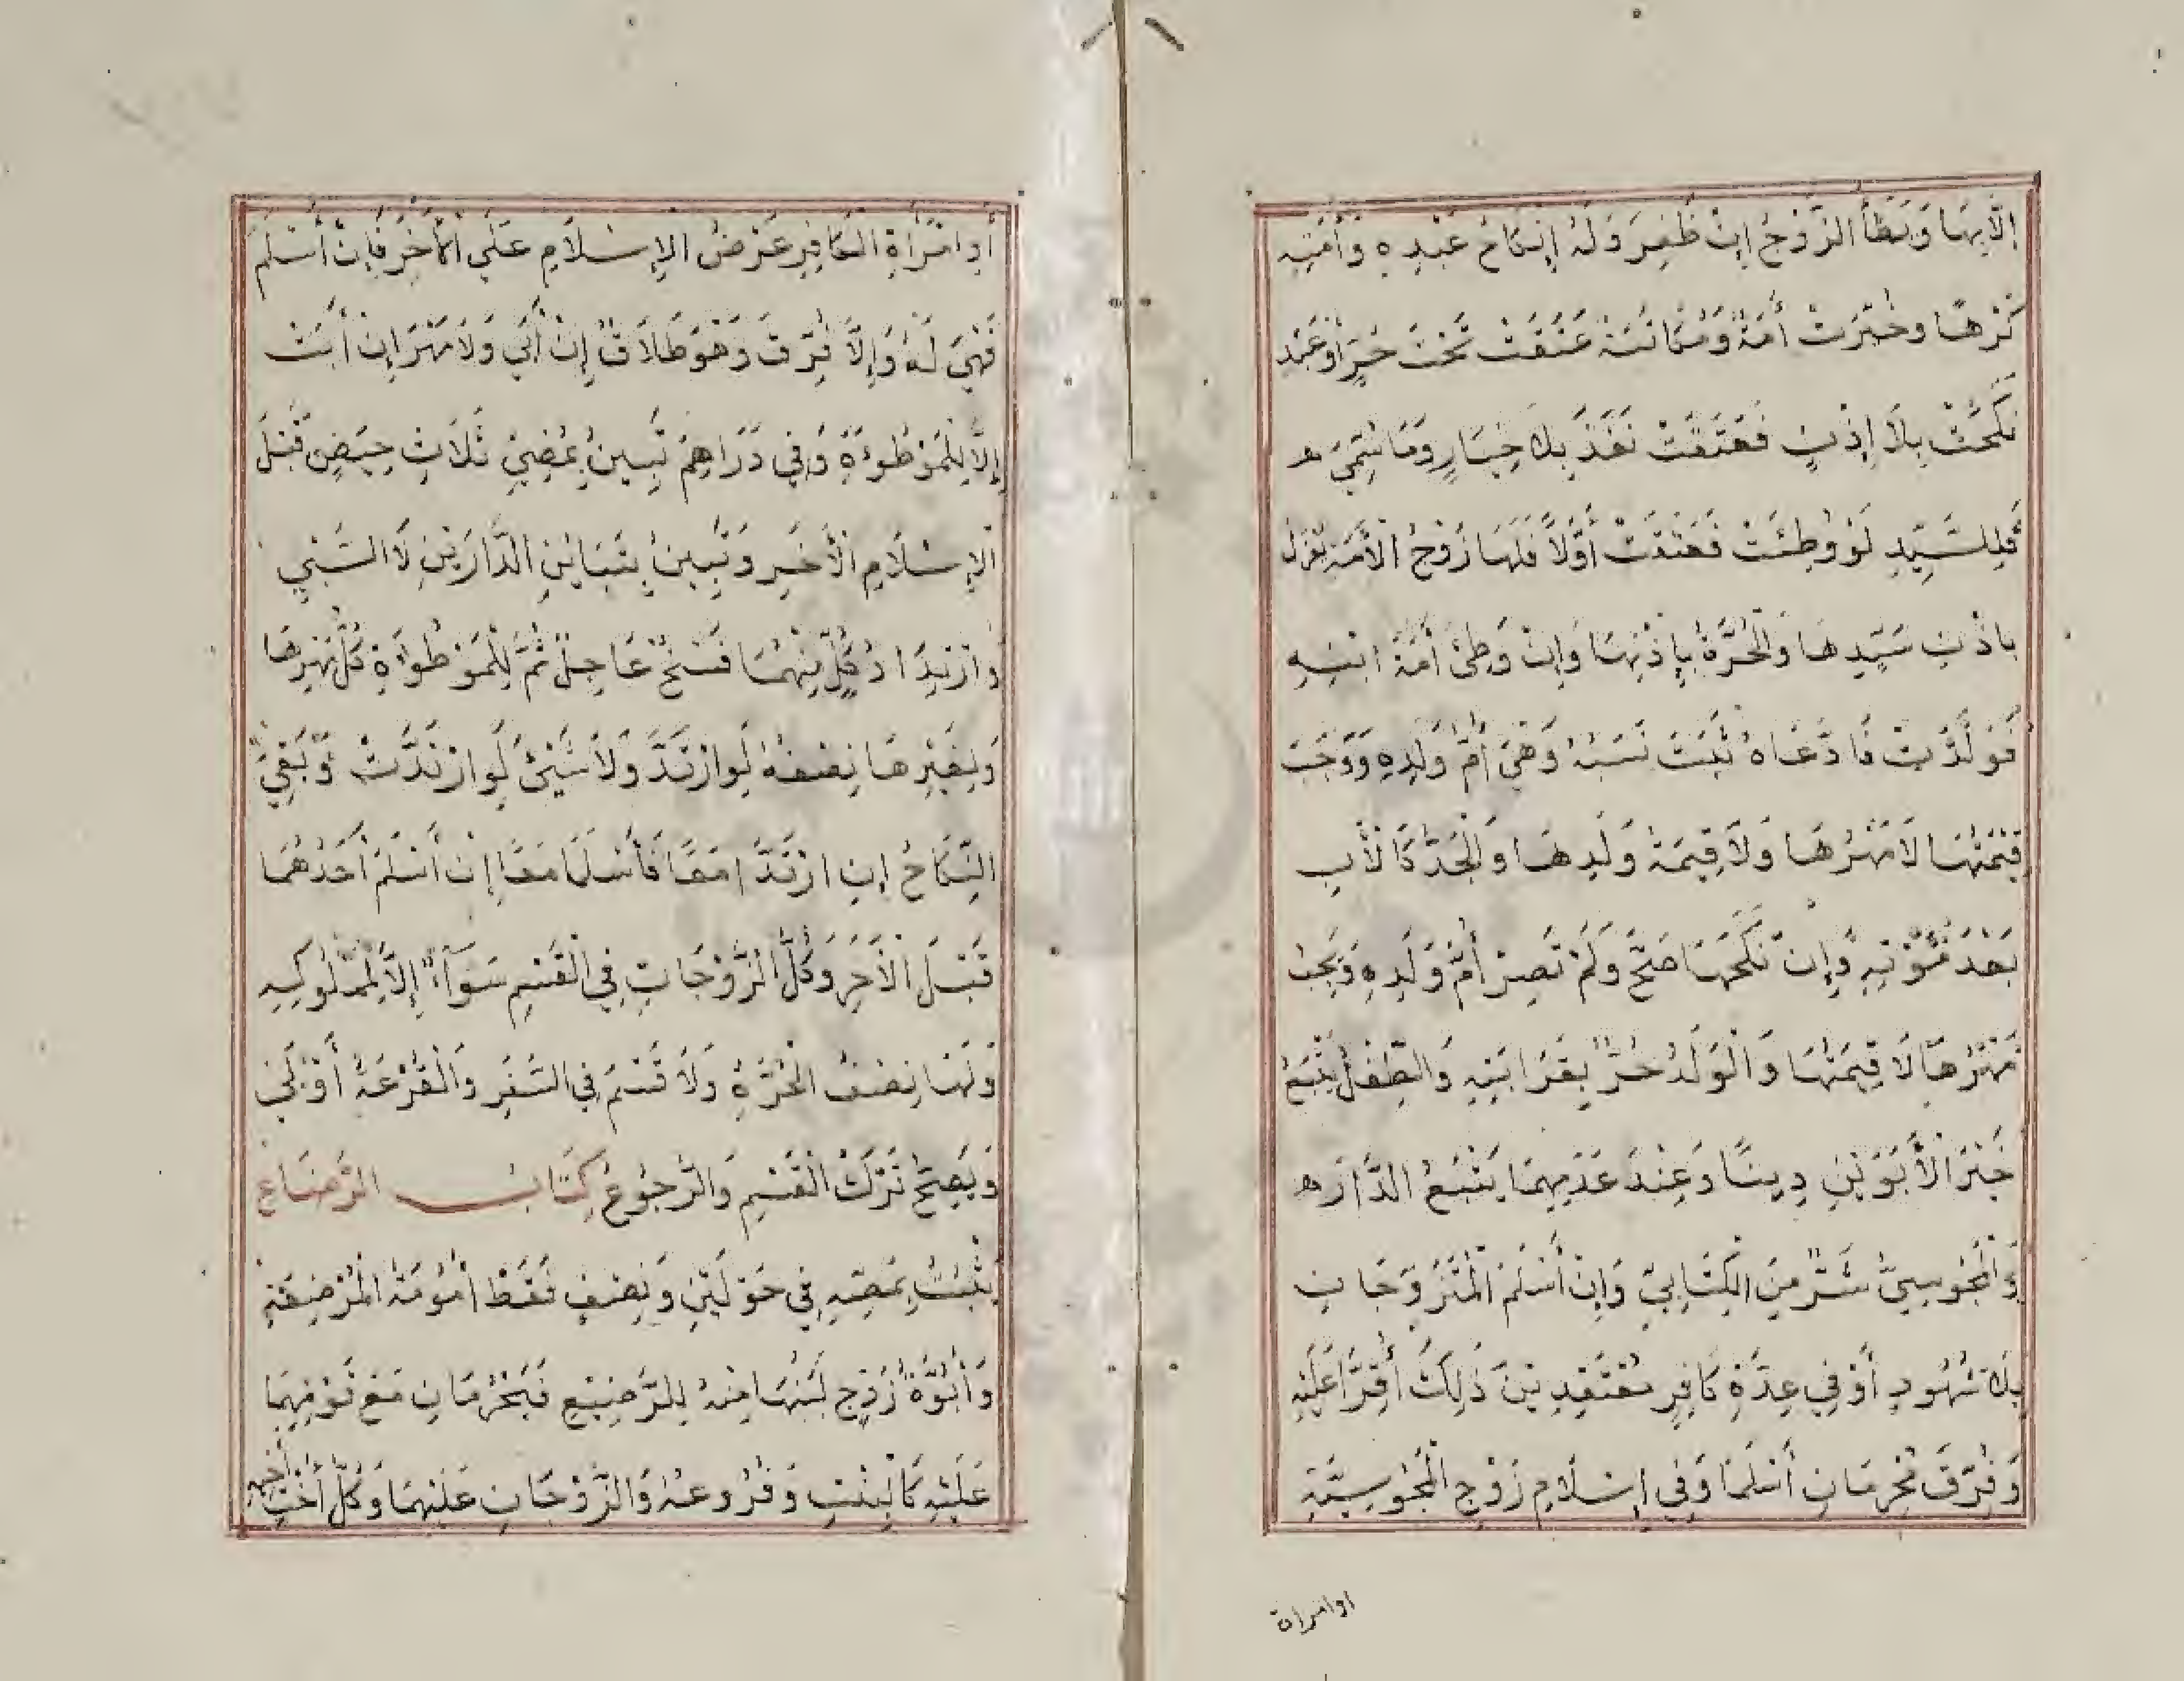 إِلَّا بِهَا وَيَطَأُ الزَّوْجُ إِنْ ظَفِرَ وَلَهُ إِنْكَاحُ عَبْدِهِ وَأَمَتِهِ
كَرْهًا وَخُيِّرَتْ أَمَةٌ وَمُكَاتَبَةٌ عَتَقَتْ تَحْتَ حُرٍّ أَوْ عَبْدٍ
نَكَحَتْ بِلَا إِذْنٍ فَعَتَقَتْ نَفَذَ بِلَا خِيَارٍ وَمَا سُمِّيَ ه
فَلِلسَّيِّدِ لَوْ وُطِئَتْ فَعَتَقَتْ أَوَّلًا فَلَهَا زَوْجُ الْأَمَةِ يَعْزِلُ
بِإِذْنِ سَيِّدِهَا وَالْحُرَّةُ بِإِذْنِهَا وَإِنْ وَطِئَ أَمَةَ ابْنِهِ
فَوَلَدَتْ فَادَّعَاهُ ثَبَتَ نَسَبُهُ وَهِيَ أُمُّ وَلَدِهِ وَوَجَبَ
قِيمَتُهَا لَا مَهْرُهَا وَلَا قِيمَةُ وَلَدِهَا وَالْجَدُّ كَالْأَبِ
بَعْدَ مَوْتِهِ وَإِنْ نَكَحَهَا صَحَّ وَلَمْ تَصِرْ أُمَّ وَلَدِهِ وَيَجِبُ
مَهْرُهَا لَا قِيمَتُهَا وَالْوَلَدُ حُرٌّ بِقَرَابَتِهِ وَالطِّفْلُ يَتْبَعُ
خَيْرَ الْأَبَوَيْنِ دِينًا وَعِنْدَ عَدَمِهِمَا يَتْبَعُ الدَّارَ ه
وَالْمَجُوسِيُّ شَرٌّ مِنَ الْكِتَابِيِّ وَإِنْ أَسْلَمَ الْمُتَزَوِّجَانِ
بِلَا شُهُودٍ أَوْ فِي عِدَّةِ كَافِرٍ مُعْتَقِدِينَ ذَلِكَ أُقِرَّا عَلَيْهِ
وَفُرِّقَ مَحْرَمَانِ أَسْلَمَا وَفِي إِسْلَامِ زَوْجِ الْمَجُوسِيَّةِ
اوامراة
أَوِ امْرَأَةِ الْكَافِرِ عَرْضُ الْإِسْلَامِ عَلَى الْآخَرِ فَإِنْ أَسْلَمَ
فَهِيَ لَهُ وَإِلَّا فُرِّقَ وَهُوَ طَلَاقٌ إِنْ أَبَى وَلَا مَهْرَ إِنْ أَبَتْ
إِلَّا لِلْمَوْطُوءَةِ وَفِي دَارِهِمْ تَبِينُ بِمُضِيِّ ثَلَاثِ حِيَضٍ قَبْلَ
الْإِسْلَامِ الْآخَرِ وَتَبِينُ بِتَبَايُنِ الدَّارَيْنِ لَا السَّبْيِ
وَارْتِدَادُ كُلٍّ مِنْهُمَا فَسْخٌ عَاجِلٌ ثُمَّ لِلْمَوْطُوءَةِ كُلُّ مَهْرِهَا
وَلِغَيْرِهَا نِصْفُهُ لَوِ ارْتَدَّ وَلَا شَيْئَ لَوِ ارْتَدَّتْ وَبَقِيَ
النِّكَاحُ إِنِ ارْتَدَّا مَعًا فَأَسْلَمَا مَعًا إِنْ أَسْلَمَ أَحَدُهُمَا
قَبْلَ الْآخَرِ وَكُلُّ الزَّوْجَاتِ فِي الْقَسْمِ سَوَاءٌ إِلَّا لِمَمْلُوكِهِ
وَلَهَا نِصْفُ الْحُرَّةِ وَلَا قَسْمَ فِي السَّفَرِ وَالْقُرْعَةُ أَوْلَى
وَيَصِحُّ تَرْكُ الْقَسْمِ وَالرُّجُوعُ كِتَابُ الرَّضَاعِ
يَثْبُتُ بِمَصِّهِ فِي حَوْلَيْنِ وَنِصْفٍ فَقَطْ أُمُومَةُ الْمُرْضِعَةِ
وَأُبُوَّةُ زَوْجٍ لَبَنُهَا مِنْهُ لِلرَّضِيعِ فَيَحْرُمَانِ مَعَ قَوْمِهِمَا
عَلَيْهِ كَالْبِنْتِ وَفُرُوعُهُ وَالزَّوْجَانِ عَلَيْهِمَا وَكُلُّ أُخْتِ أَخِيهِ